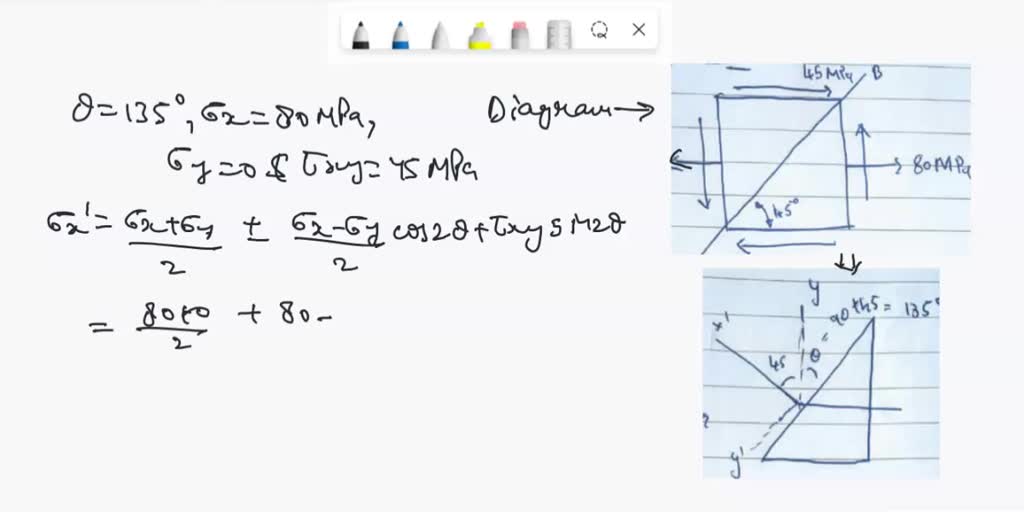 θ=135°, σx=80MPa,
σy=0 & τxy=45MPa
Diagram→
σx' = σx+σy/2 ± σx-σy/2 cos2θ+τxy sin2θ
= 80+0/2 + 80-
45MPa B
80MPa
45°
y
90+45 = 135°
x'
45 θ
y'